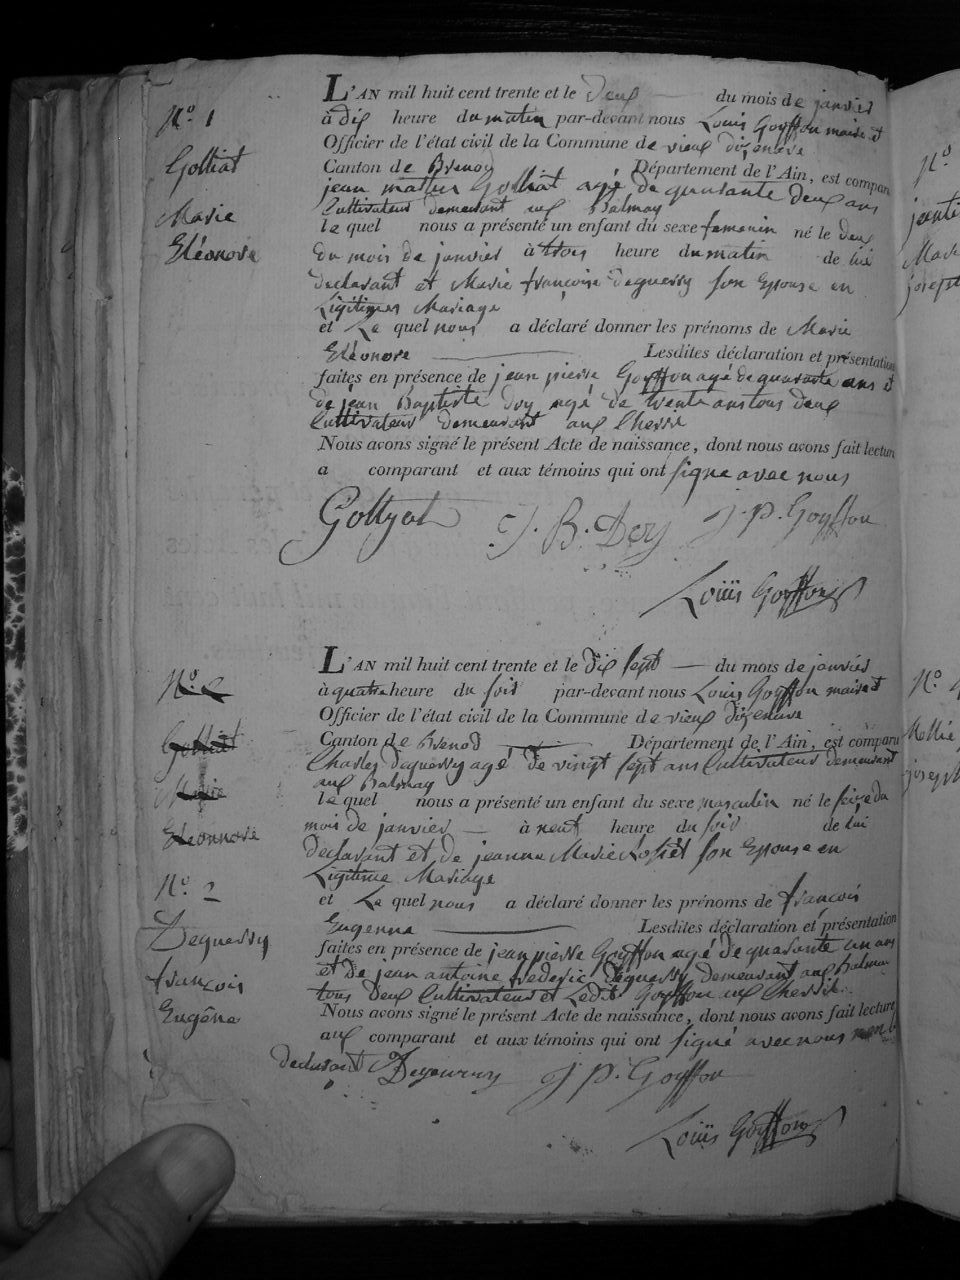 N.o 1
Golliat
Marie
Eléonore
L'AN mil huit cent trente et le deux du mois de janvier
à dix heure du matin par-devant nous Louis Goyffon maire et
Officier de l'état civil de la Commune de vieux dizenave
Canton de Brenod Département de l'Ain, est comparu
jean matieu Golliat agé de quarante deux ans
Cultivateur demeurant aux Balmay
lequel nous a présenté un enfant du sexe femenin né le deux
du mois de janvier à trois heure du matin de lui
declarant et Marie françoise Deguerry son Epouse en
Legitimes Mariage
et Le quel nous a déclaré donner les prénoms de Marie
Eléonore Lesdites déclaration et présentation
faites en présence de jean pierre Goyffon agé de quarante ans et
de jean Baptiste Dey agé de trente ans tous deux
Cultivateur demeurant aux
Nous avons signé le présent Acte de naissance, dont nous avons fait lecture
a comparant et aux témoins qui ont signe avec nous
Gollyat J. B. Dey J. P. Goyffon
Louis Goyffon
N.o 2
Golliat
Marie
Eléonnore
N.o 2
Deguerry
françois
Eugêne
L'AN mil huit cent trente et le dix sept du mois de janvier
à quatre heure du soir par-devant nous Louis Goyffon maire et
Officier de l'état civil de la Commune de vieux dizenave
Canton de Brenod Département de l'Ain, est comparu
Charles Deguerry agé de vingt sept ans Cultivateur demeurant
aux Balmay
lequel nous a présenté un enfant du sexe masculin né le seize du
mois de janvier à neuf heure du soir de lui
declarent et de jeanne Marie son Epouse en
Legitime Mariage
et Le quel nous a déclaré donner les prénoms de françois
Eugenne Lesdites déclaration et présentation
faites en présence de jean pierre Goyffon agé de quarante un ans
et de jean antoine frederic Deguerry demeurant aux Balmay
tous deux Cultivateur et Ledit Goyffon aux
Nous avons signé le présent Acte de naissance, dont nous avons fait lecture
aux comparant et aux témoins qui ont signé avec nous non le
declarant Degeurry J P. Goyffon
Louis Goyffon
N.o
Marie
joseph
N.o
joseph